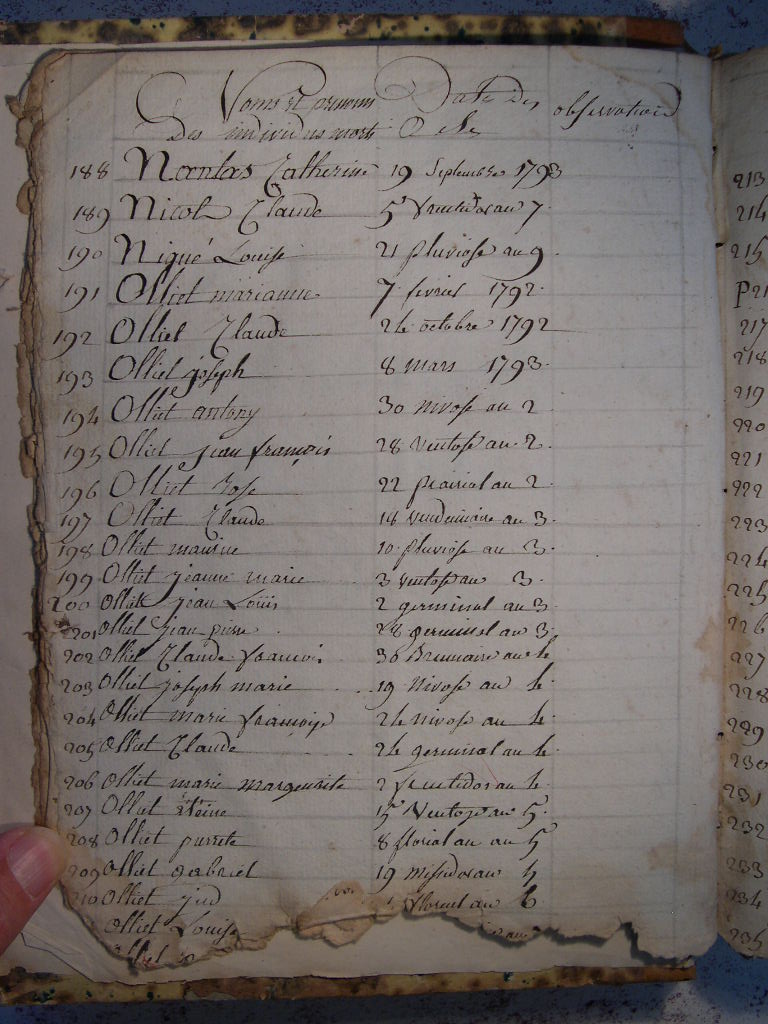 Noms et prenoms Date des observations
Des individus morts
188 Nantas Catherine 19 Septembre 1793
189 Nicol Claude 5 fructidor an 7.
190 Nigué Louise 21 pluviose an 9.
191 Olliet marianne 7 fevrier 1792
192 Olliet Claude 24 octobre 1792
193 Olliet joseph 8 mars 1793.
194 Olliet antony 30 nivose an 2
195 Olliet jean francois 28 Ventose an 2.
196 Olliet Rose 22 prairial an 2.
197 Olliet Claude 14 vendemiaire an 3.
198 Olliet maurine 10 pluviose an 3.
199 Olliet jeanne marie 3 ventose an 3.
200 Olliet jean Louis 2 germinal an 3
201 Olliet jean pierre 28 germinal an 3.
202 Olliet Claude francois 30 Brumaire an 4
203 Olliet joseph marie 19 Nivose an 4.
204 Olliet marie francoise 24 nivose an 4.
205 Olliet Claude 24 germinal an 4
206 Olliet marie marguerite 2 fructidor an 4.
207 Olliet Reine 15 Ventose an 5.
208 Olliet pierrete 8 florial an 5
209 Olliet gabriel 19 messidor an 5
210 Olliet florial an 6
Olliet Louise an
Olliet
213
214
215
P21
217
218
219
220
221
222
223
224
225
226
227
228
229
230
231
232
233
234
235